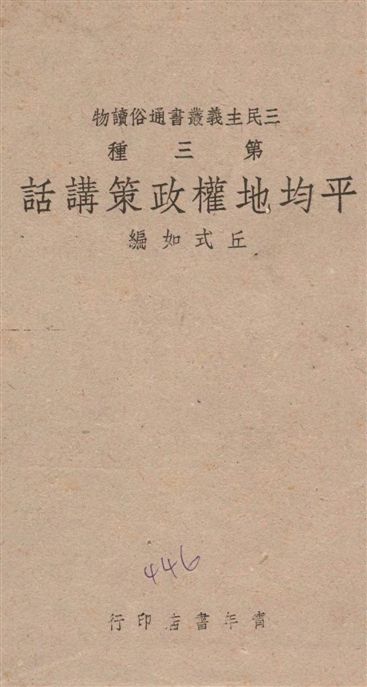 三民主義叢書通俗讀物
第三種
平均地權政策講話
丘式如編
446
青年書店印行